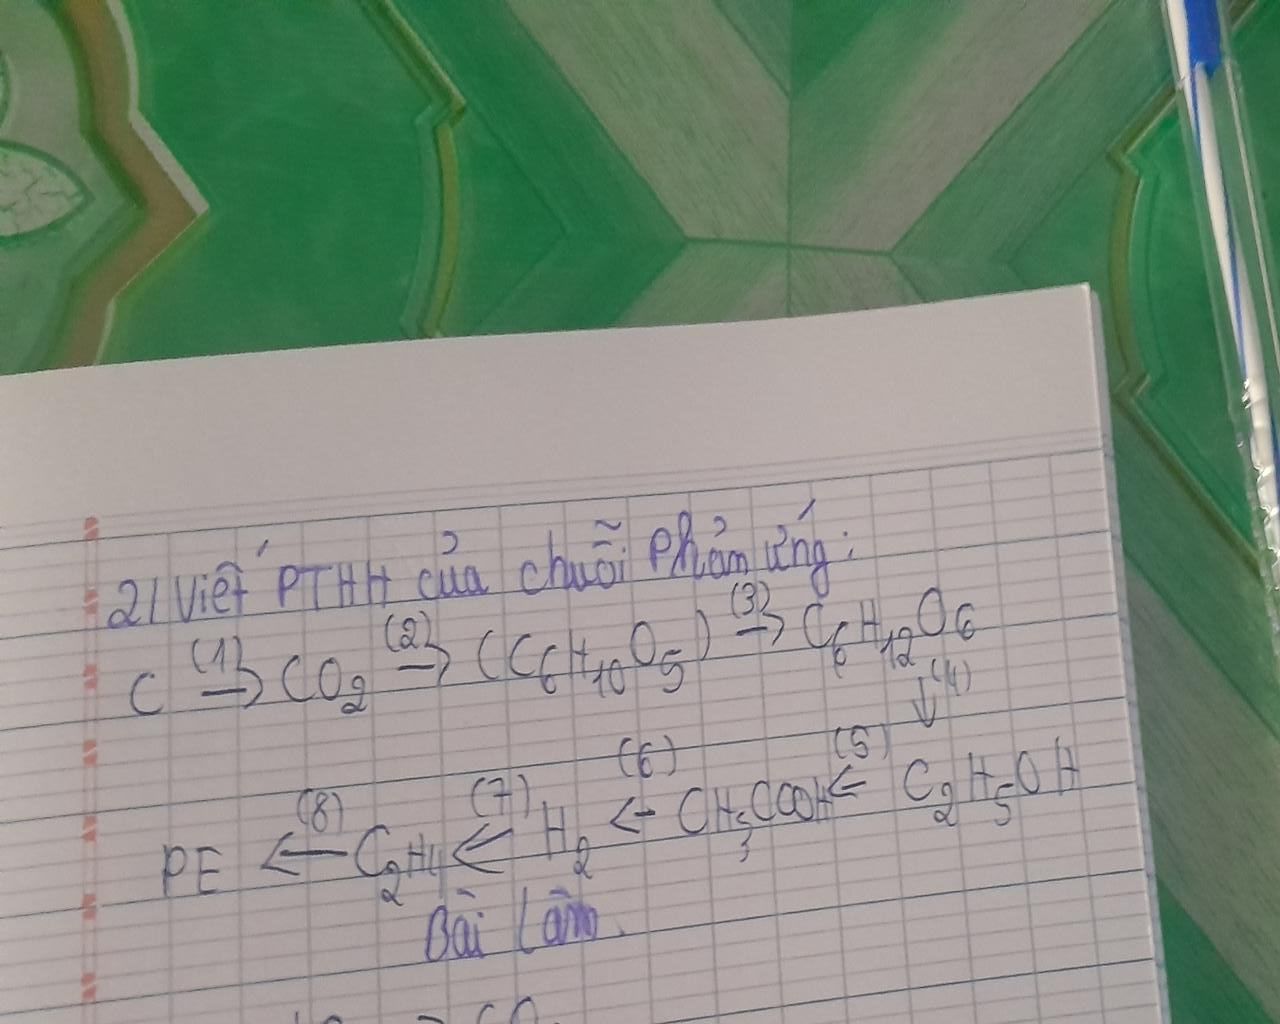 2/ Viết PTHH của chuỗi Phản ứng:
C (1)→ CO2 (2)→ (C6H10O5) (3)→ C6H12O6
↓(4)
PE ←(8) C2H4 ←(7) H2 ←(6) CH3COOH ←(5) C2H5OH
Bài làm